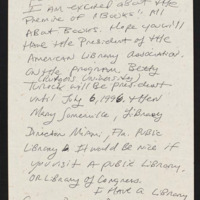 I AM excited about the
Premise of "Books: All
About Books. Hope you'll
Have the President of the
American Library Association
ON the program Betty
(Rutgers University)
Turock will be president
until July 6, 1996, & then
Mary Somerville, Library
Director Miami, Fla. Public
Library. It would be nice if
you visit A public Library.
OR Library of Congress
I Have a Library